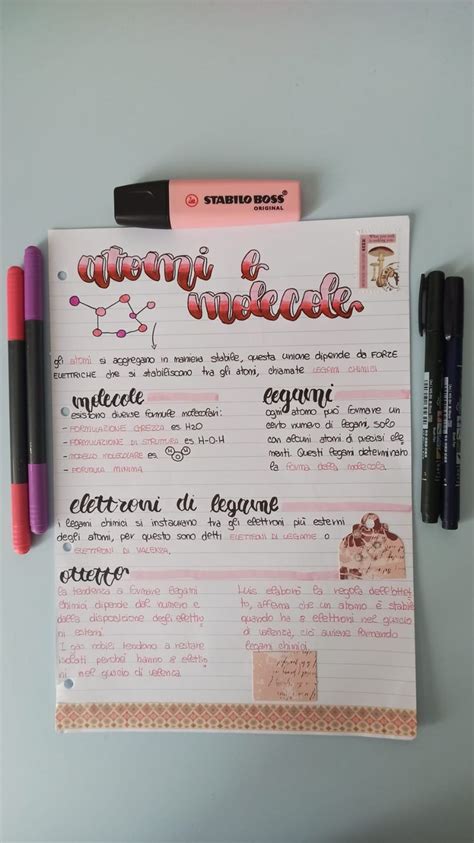 STABILO BOSS
ORIGINAL
atomi e
molecole
gli atomi si aggregano in maniera stabile, questa unione dipende da FORZE
ELETTRICHE che si stabiliscono tra gli atomi, chiamate LEGAMI CHIMICI
molecole
esistono diverse formule molecolari:
- FORMULAZIONE GREZZA es H2O
- FORMULAZIONE DI STRUTTURA es H-O-H
- MODELLO MOLECOLARE es H O H
- FORMULA MINIMA
legami
ogni atomo può formare un
certo numero di legami, solo
con alcuni atomi di precisi ele
menti. Questi legami determinano
la forma della molecola
elettroni di legame
i legami chimici si instaurano tra gli elettroni più esterni
degli atomi, per questo sono detti ELETTRONI DI LEGAME O
ELETTRONI DI VALENZA.
ottetto
la tendenza a formare legami
chimici dipende dal numero e
dalla disposizione degli elettro
ni esterni.
I gas nobili tendono a restare
isolati perché hanno 8 elettro
ni nel guscio di valenza
Luis elaborò la regola dell'ottet
to, afferma che un atomo è stabile
quando ha 8 elettroni nel guscio
di valenza, ciò avviene formando
legami chimici